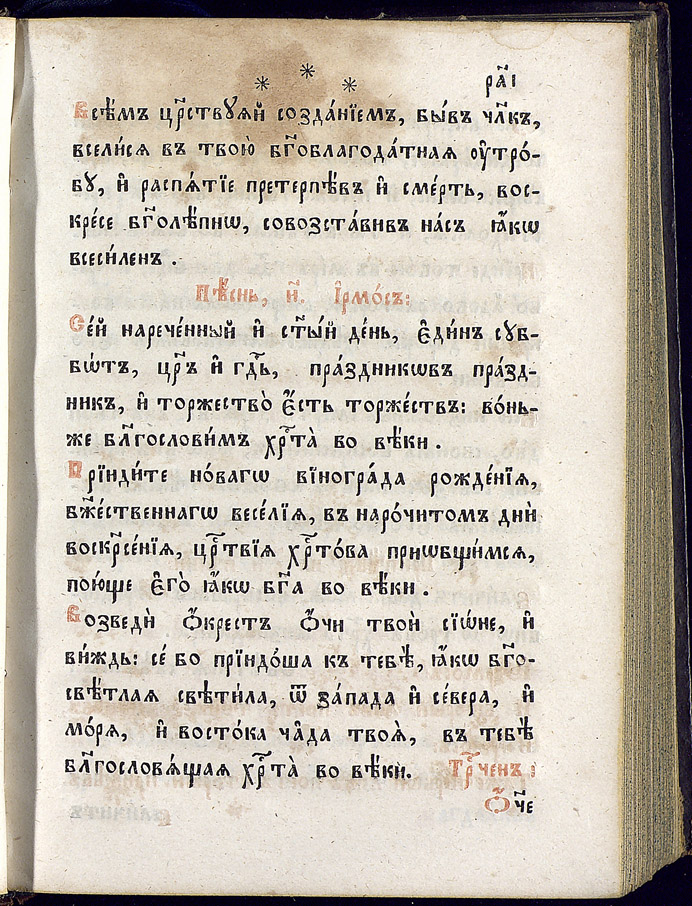 * * *
ра҃і
Всѣ́мъ црⷭ҇твꙋѧй созда́нїемъ, бы́въ чл҃къ,
всели́сѧ въ твою̀ бг҃облагода́тнаѧ ᲂу҆тро́-
бꙋ, и҆ распѧ́тїе претерпѣ́въ и҆ сме́рть, вос-
кре́се бг҃олѣ́пнѡ, совозста́вивъ на́съ ꙗ҆́кѡ
всеси́ленъ.
Пѣ́снь, и҃. І҆рмо́съ:
Се́й нарече́нный и҆ ст҃ы́й де́нь, є҆ди́нъ сꙋб-
бѡ́тъ, цр҃ь и҆ гдⷭ҇ь, пра́здникѡвъ пра́зд-
никъ, и҆ торжество̀ є҆́сть торже́ствъ: во́нь-
же бл҃гослови́мъ хрⷭ҇та̀ во вѣ́ки.
Прїиди́те но́вагѡ вїногра́да рожде́нїѧ,
бж҃е́ственнагѡ весе́лїѧ, въ наро́читомъ днѝ
воскрⷭ҇е́нїѧ, црⷭ҇твїѧ хрⷭ҇то́ва приѡбщи́мсѧ,
пою́ще є҆го̀ ꙗ҆́кѡ бг҃а во вѣ́ки.
Возведѝ ѻ҆́крестъ ѻ҆́чи твоѝ сїѡ́не, и҆
ви́ждь: се́ бо прїидо́ша къ тебѣ̀, ꙗ҆́кѡ бг҃о-
свѣ́тлаѧ свѣти́ла, ѿ за́пада и҆ се́вера, и҆
мо́рѧ, и҆ восто́ка ча̑да твоѧ̑, въ тебѣ̀
бл҃гословѧ́щаѧ хрⷭ҇та̀ во вѣ́ки. Трⷪ҇ченъ:
Ѻ҆́ч҃е